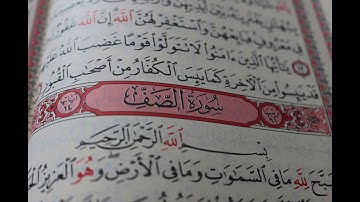 فِى مَعْرُوفٍ فَبَايِعْهُنَّ وَٱسْتَغْفِرْ لَهُنَّ ٱللَّهَ إِنَّ ٱللَّهَ غَفُورٌ
يَٰٓأَيُّهَا ٱلَّذِينَ ءَامَنُوا۟ لَا تَتَوَلَّوْا۟ قَوْمًا غَضِبَ ٱللَّهُ
قَدْ يَئِسُوا۟ مِنَ ٱلْءَاخِرَةِ كَمَا يَئِسَ ٱلْكُفَّارُ مِنْ أَصْحَٰبِ ٱلْقُبُورِ
سُورَةُ ٱلصَّفِّ
بِسْمِ ٱللَّهِ ٱلرَّحْمَٰنِ ٱلرَّحِيمِ
سَبَّحَ لِلَّهِ مَا فِى ٱلسَّمَٰوَٰتِ وَمَا فِى ٱلْأَرْضِ وَهُوَ ٱلْعَزِيزُ